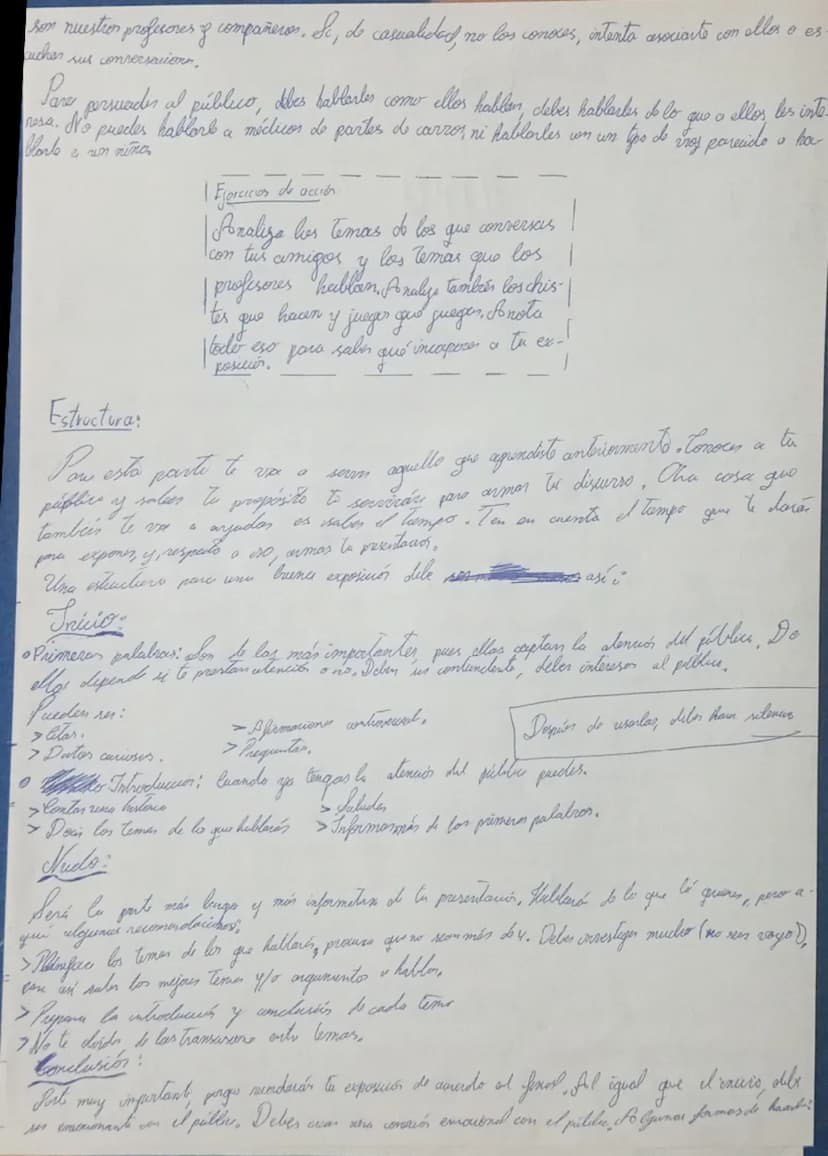 son nuestros profesores y compañeros. Si, de casualidad, no los conoces, intenta asociarte con ellos o es-
cuchar sus conversaciones.
Para persuadir al público, debes hablarles como ellos hablan, debes hablarles de lo que a ellos les inte-
resa. No puedes hablarle a médicos de partes de carros, ni hablarles con un tipo de voz parecido a ha-
blarle a un niño.
Ejercicios de acción
Analiza los temas de los que conversas
con tus amigos y los temas que los
profesores hablan. Analiza también los chis-
tes que hacen y juegos que juegan. Anota
todo eso para saber qué incorporar a tu ex-
posición.
Estructura:
Para esta parte te va a servir aquello que aprendiste anteriormente. Conocer a tu
público y saber tu propósito te servirán para armar tu discurso. Otra cosa que
también te va a ayudar es saber el tiempo. Ten en cuenta el tiempo que te darán
para exponer, y, respecto a eso, armas tu presentación.
Una estructura para una buena exposición debe así:
Inicio:
• Primeras palabras: Son de las más importantes, pues ellas captan la atención del público. De
ellas depende si te prestan atención o no. Deben ser contundente, deben interesar al público.
Pueden ser:
> Citas.
> Afirmaciones controversial.
> Datos curiosos.
> Preguntas.
Después de usarlas, debes hacer silencio
• Introducción: Cuando ya tengas la atención del público puedes.
> Contar una historia
> Saludar
> Decir los temas de lo que hablarás
> Informar más de las primeras palabras.
Nudo:
Será la parte más larga y más informativa de tu presentación. Hablarás de lo que tú quieras, pero a-
quí algunas recomendaciones:
> los temas de los que hablarás, procura que no sean más de 4. Debes investigar mucho (no seas vago),
para así saber los mejores temas y/o argumentos a hablar.
> Prepara la introducción y conclusión de cada tema
> No te olvides de las transiciones entre temas.
Conclusión:
Parte muy importante, porque recordarán tu exposición de acuerdo al final. Al igual que el inicio, debe
ser emocionante con el público. Debes crear una conexión emocional con el público. Algunas formas de